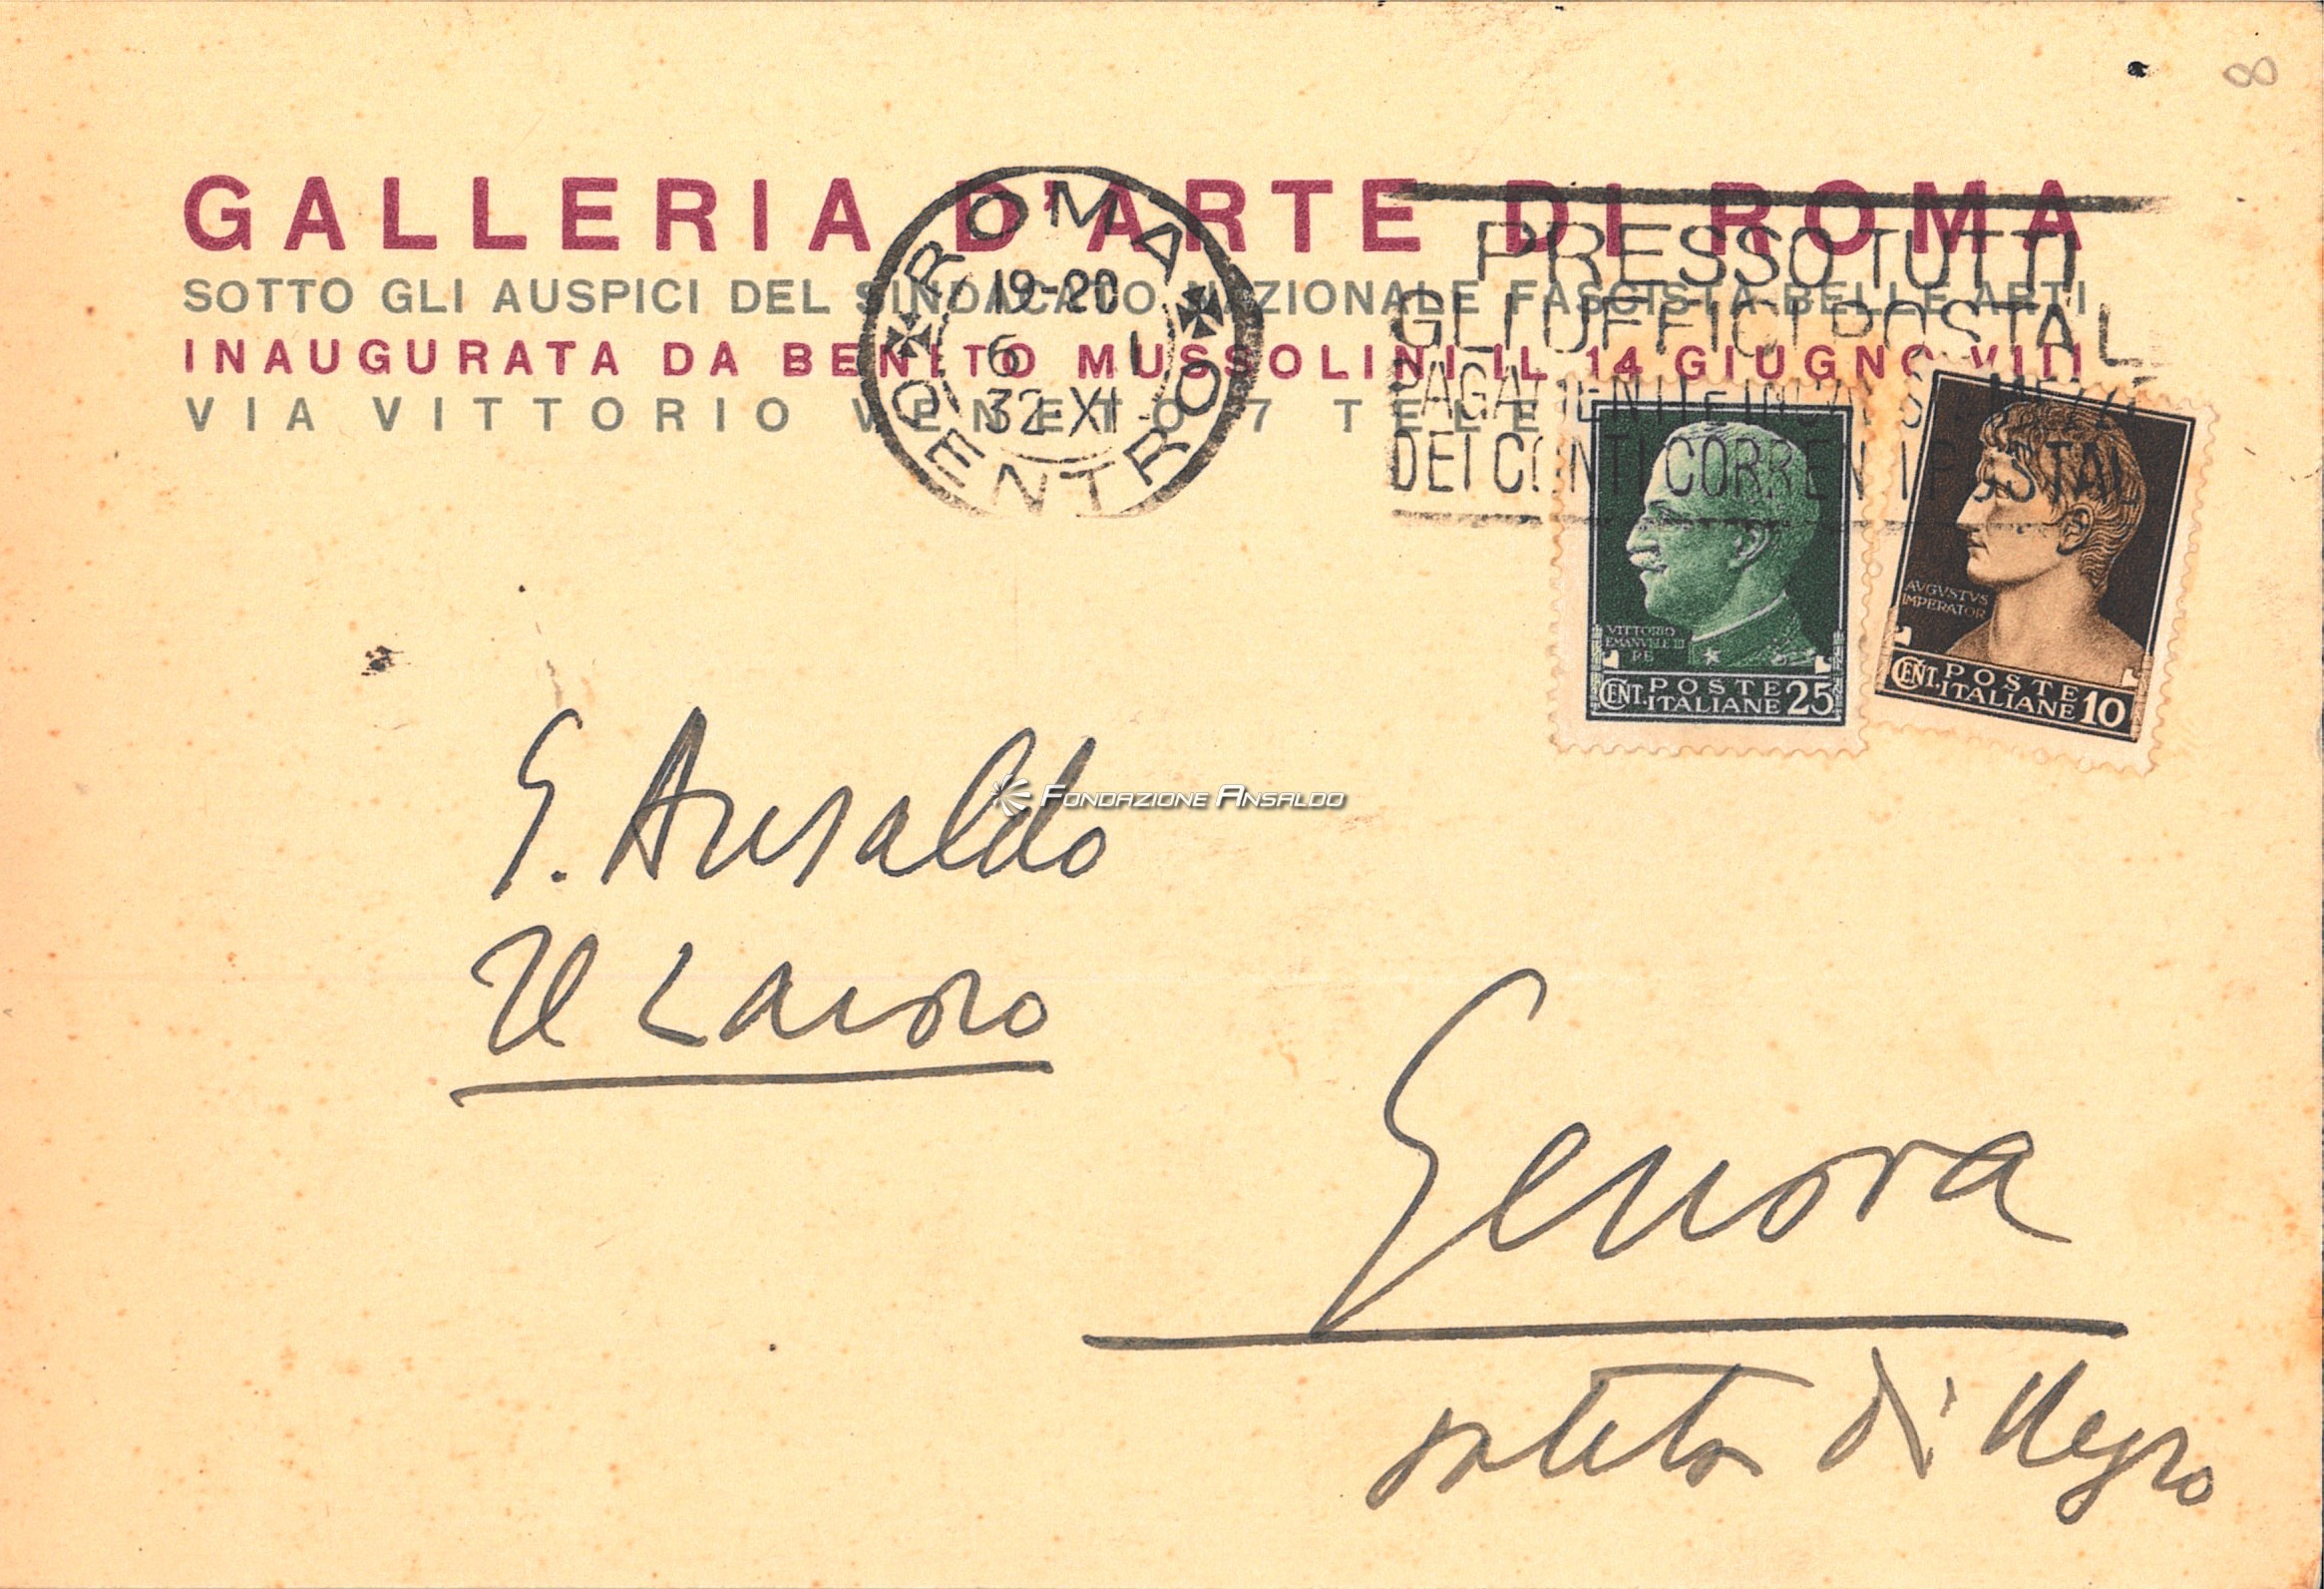 8
GALLERIA D'ARTE DI ROMA
SOTTO GLI AUSPICI DEL SINDACATO NAZIONALE FASCISTA BELLE ARTI
INAUGURATA DA BENITO MUSSOLINI IL 14 GIUGNO VIII
VIA VITTORIO VENETO 7 TELE
ROMA CENTRO
19-20
6 I
32 XI
PRESSO TUTTI
GLI UFFICI POSTALI
PAGAMENTI E
DEI CONTI CORRENTI POSTALI
VITTORIO
EMANVELE III
RE
CENT. POSTE ITALIANE 25
AVGVSTVS
IMPERATOR
CENT. POSTE ITALIANE 10
G. Ansaldo
Fondazione Ansaldo
Il Lavoro
Genova
salita di Negro